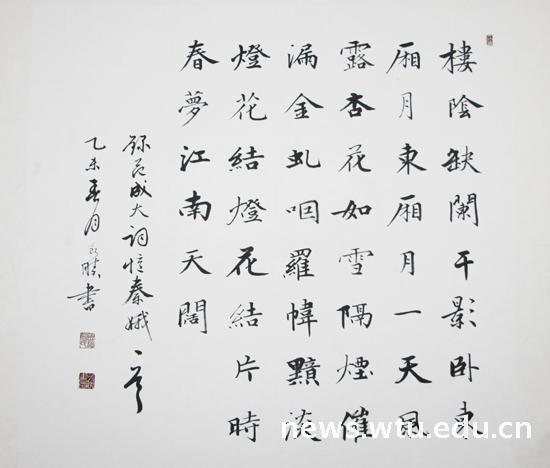 樓陰缺闌干影卧東
厢月東厢月一天風
露杏花如雪隔煙催
漏金虬咽羅幃黯淡
燈花結燈花結片時
春夢江南天闊
録范成大詞憶秦娥一首
乙未春月書
news.wtu.edu.cn